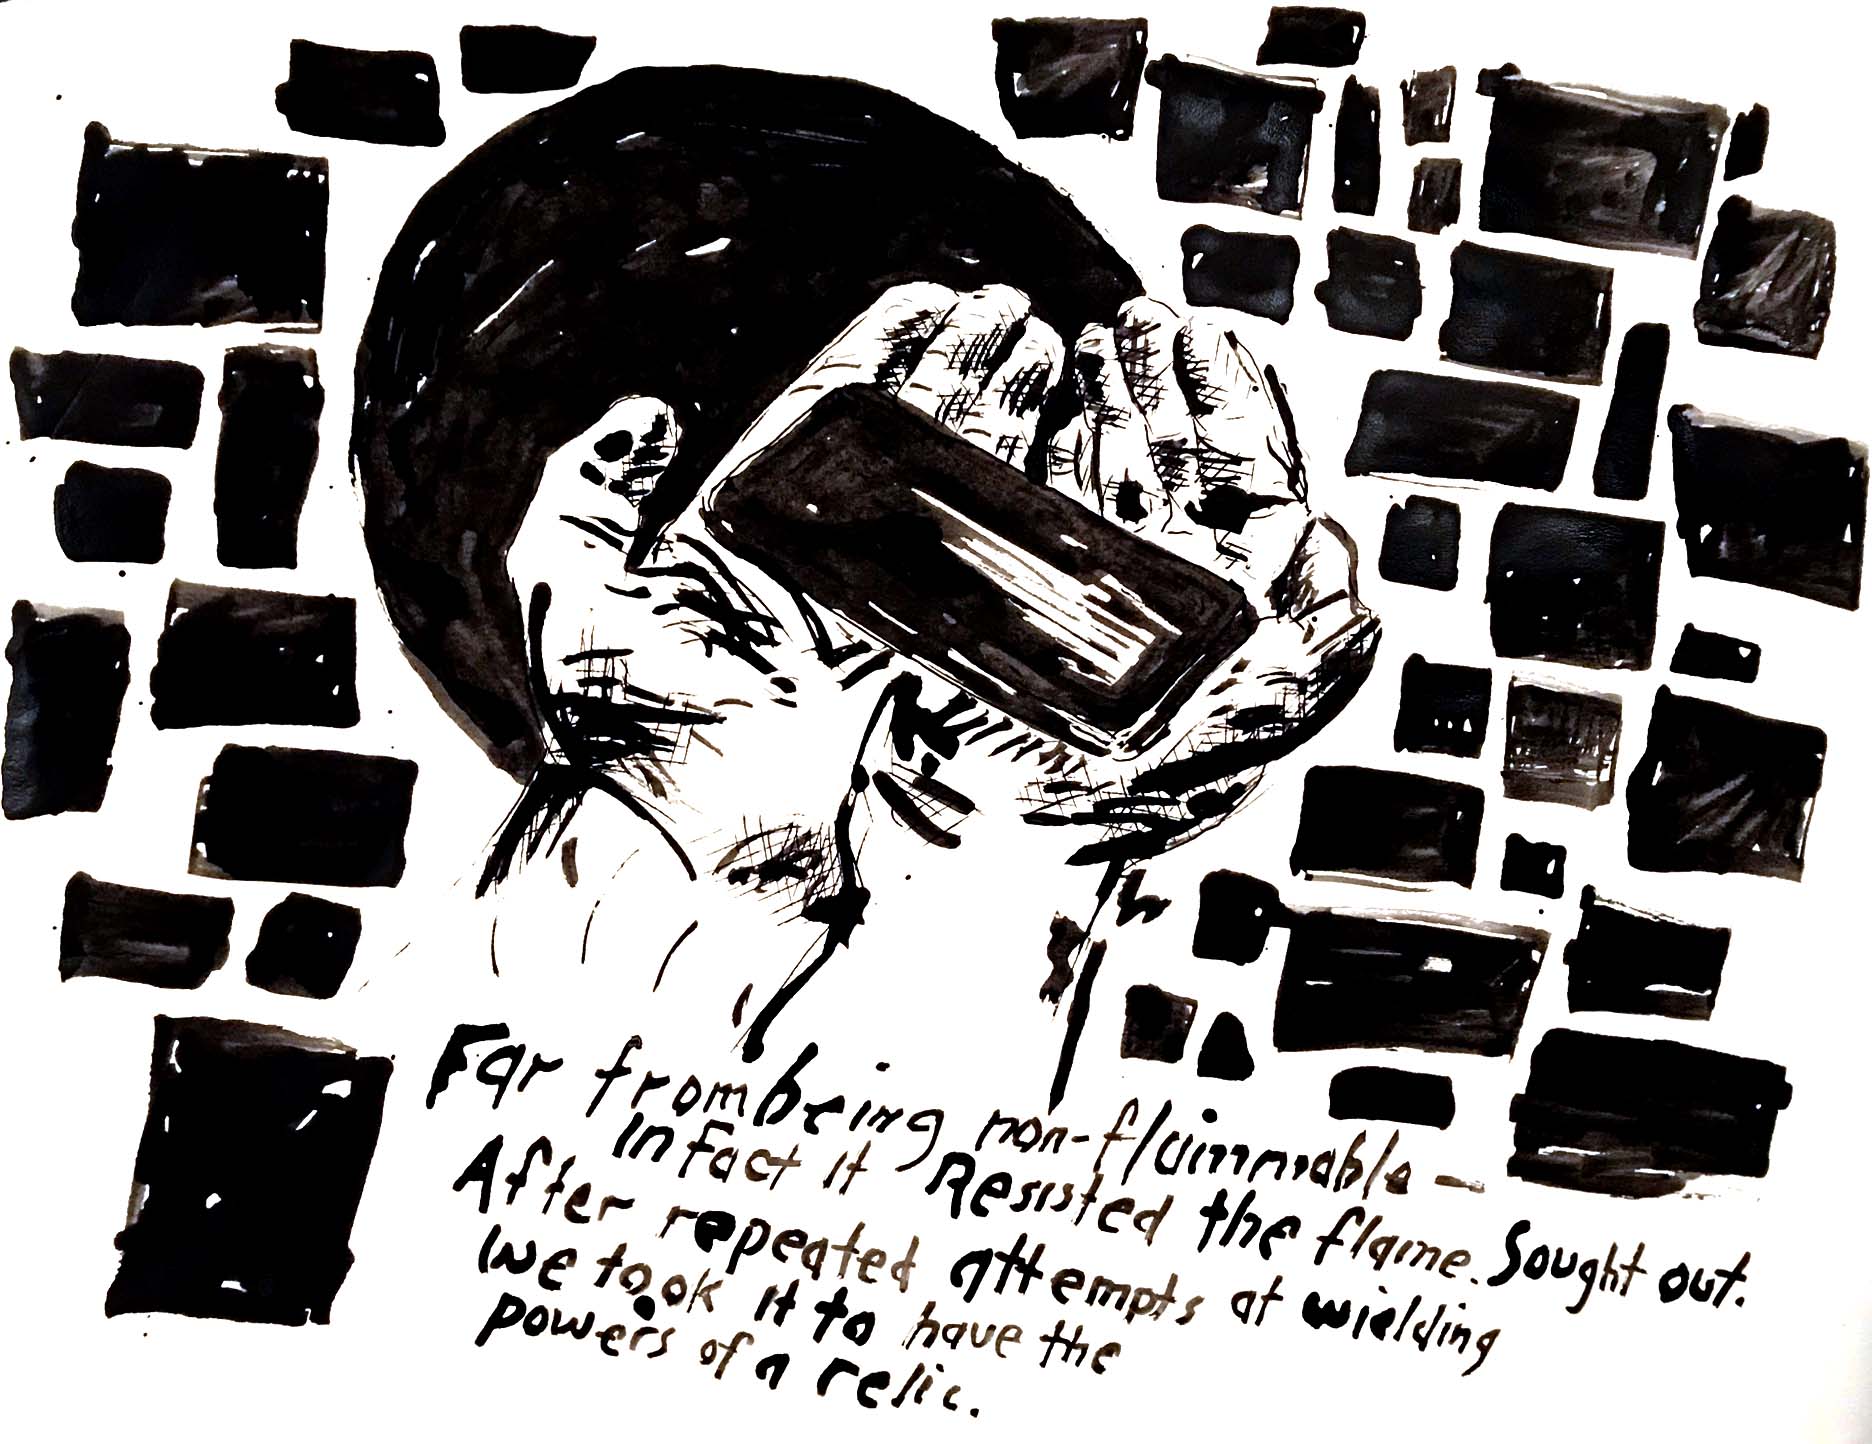 Far from being non-flammable —
In Fact it Resisted the flame. Sought out.
After repeated attempts at wielding
We took it to have the
powers of a relic.